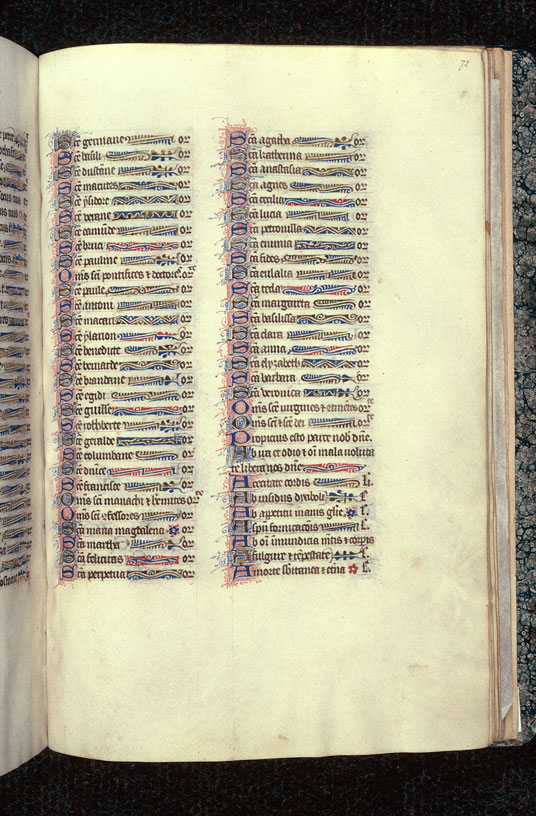 72
Sce germane or
Sce basili or
Sce dustane or
Sce macute or
Sce ysidore or
Sce verane or
Sce camille or
Sce brici or
Sce pauline or
Oms sci pontifices t doctores or
Sce paule or
Sce antoni or
Sce macari or
Sce ylarion or
Sce benedicte or
Sce bernarde or
Sce brandane or
Sce egidi or
Sce guille or
Sce rothberte or
Sce geralde or
Sce columbane or
Sce dnice or
Sce francisce or
Oms sci monachi t heremite or
Oms sci 9fessores or
Sca maria magdalena or
Sca martha or
Sca felicitas or
Sca perpetua or
Sca agatha or
Sca katherina or
Sca anastasia or
Sca agnes or
Sca cecilia or
Sca lucia or
Sca petronilla or
Sca eufimia or
Sca fides or
Sca eulalia or
Sca tecla or
Sca margareta or
Sca basilissa or
Sca clara or
Sca anna or
Sca elyzabeth or
Sca barbara or
Sca veronica or
Oms sce virgines t 9tinentes or
Oms sci t sce dei
Propicius esto parce nob dne
Ab ira et odio et oi mala volunta
te libera nos dne
A cecitate cordis l
Ab insidiis dyaboli l
Ab apetitu inanis glie l
A spu fornicacois l
Ab oi inmundicia mtis t corpis
A fulgure t tepestate l
A morte sbitanea t etna l